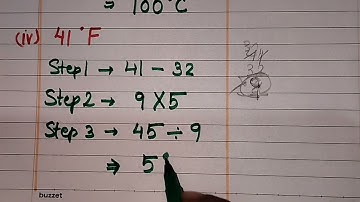 = 100°C
(iv) 41°F
Step 1 → 41 - 32
Step 2 → 9 × 5
Step 3 → 45 ÷ 9
⇒ 5°
buzzet